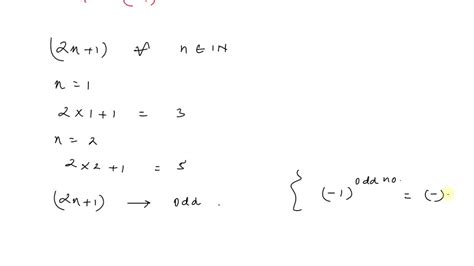 (2n+1) ∀ n ∈ IN
n = 1
2 × 1 + 1 = 3
n = 2
2 × 2 + 1 = 5
(2n+1) → odd .
{ (-1)^odd no. = (-)